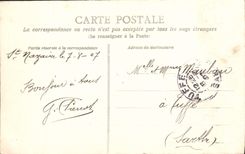 CARTE POSTALE
La correspondance au recto n'est pas acceptée par tous les pays étrangers
(Se renseigner à la Poste)
Partie réservée à la correspondance
Adresse du destinataire
St Nazaire le 7-8-07
Bonjour à tous
Melle et
à Tuffé
Sarthe